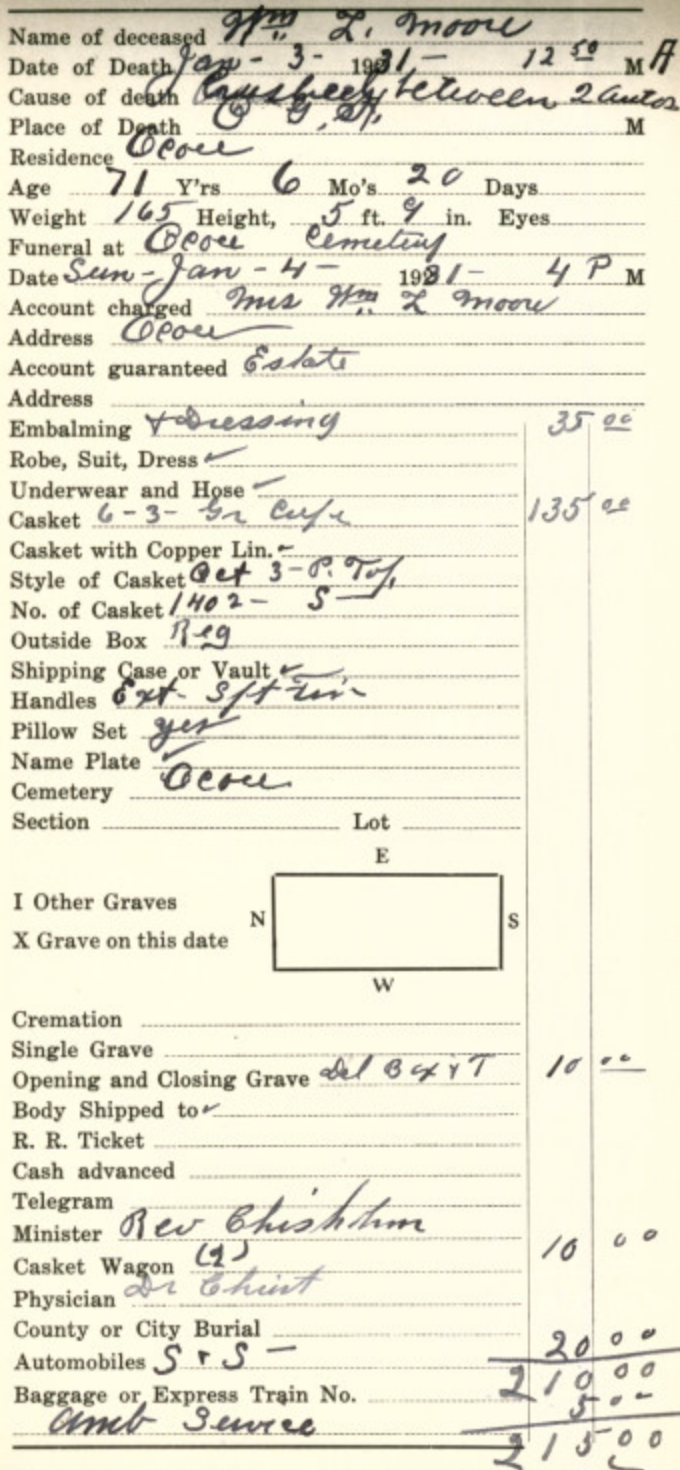 Name of deceased Wm L. Moore
Date of Death Jan - 3 - 1931 - 12 50 M A
Cause of death Crushed between 2 autos
Place of Death O G, H. M
Residence Ocoee
Age 71 Y'rs 6 Mo's 20 Days
Weight 165 Height, 5 ft. 9 in. Eyes
Funeral at Ocoee Cemetery
Date Sun - Jan - 4 - 1931 - 4 P M
Account charged Mrs Wm L Moore
Address Ocoee
Account guaranteed Estate
Address
Embalming + Dressing 35 00
Robe, Suit, Dress ✓
Underwear and Hose ✓
Casket 6 - 3 - Gr 135 00
Casket with Copper Lin. ✓
Style of Casket Oct 3 - P. Top
No. of Casket 1402 - S
Outside Box Reg
Shipping Case or Vault ✓
Handles Ext -
Pillow Set yes
Name Plate ✓
Cemetery Ocoee
Section Lot
E
I Other Graves
N S
X Grave on this date
W
Cremation
Single Grave
Opening and Closing Grave Del Box & T 10 00
Body Shipped to ✓
R. R. Ticket
Cash advanced
Telegram
Minister Rev
Casket Wagon (2) 10 00
Physician Dr Christ
County or City Burial
Automobiles S & S - 20 00
210 00
Baggage or Express Train No. 5 00
Amb Service
215 00